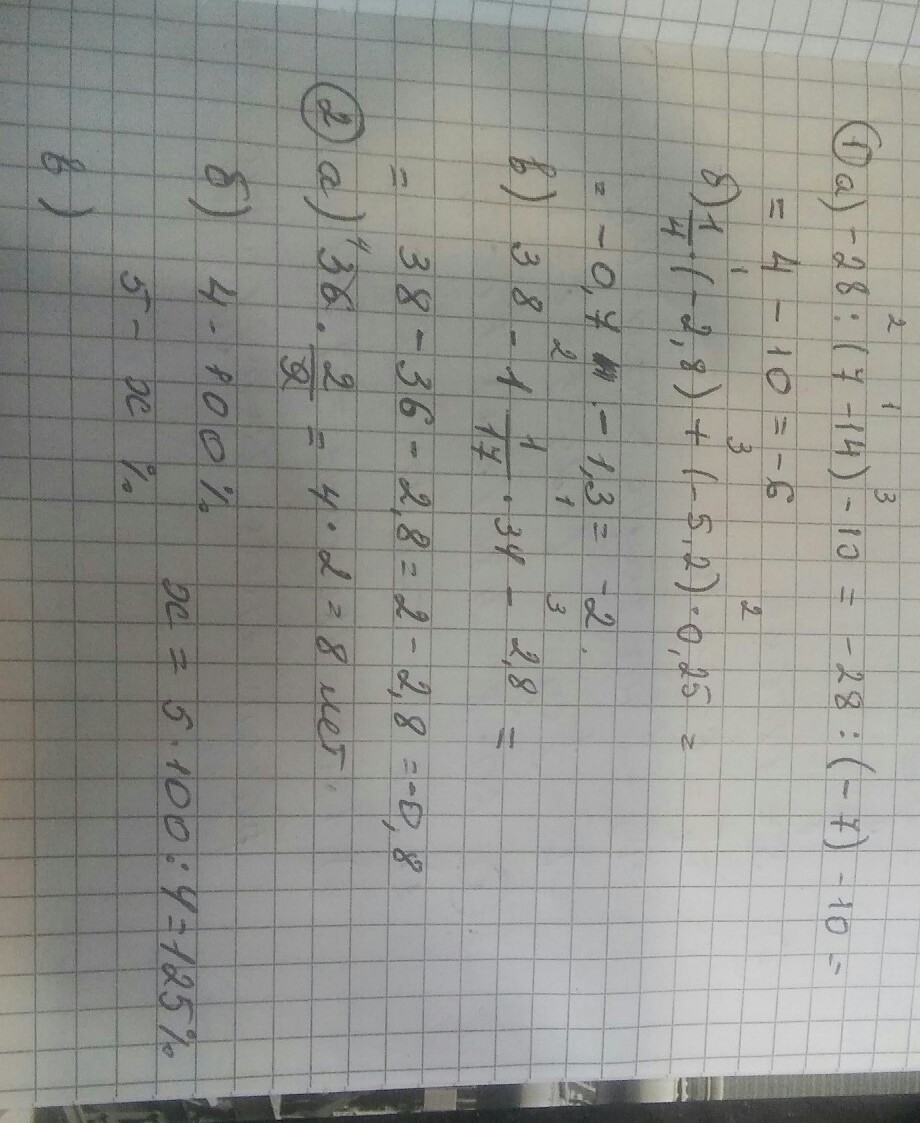 2 1 3
① а) -28 : (7 -14) -10 = -28 : (-7) -10 =
= 4 - 10 = -6
1 3 2
б) 1/4 · (-2,8) + (-5,2) · 0,25 =
= -0,7 - 1,3 = -2.
2 1 3
в) 38 - 1 1/17 · 34 - 2,8 =
= 38 - 36 - 2,8 = 2 - 2,8 = -0,8
② а) 36 · 2/9 = 4 · 2 = 8 лет.
б) 4 - 100%
5 - x % x = 5 · 100 : 4 = 125%
в)